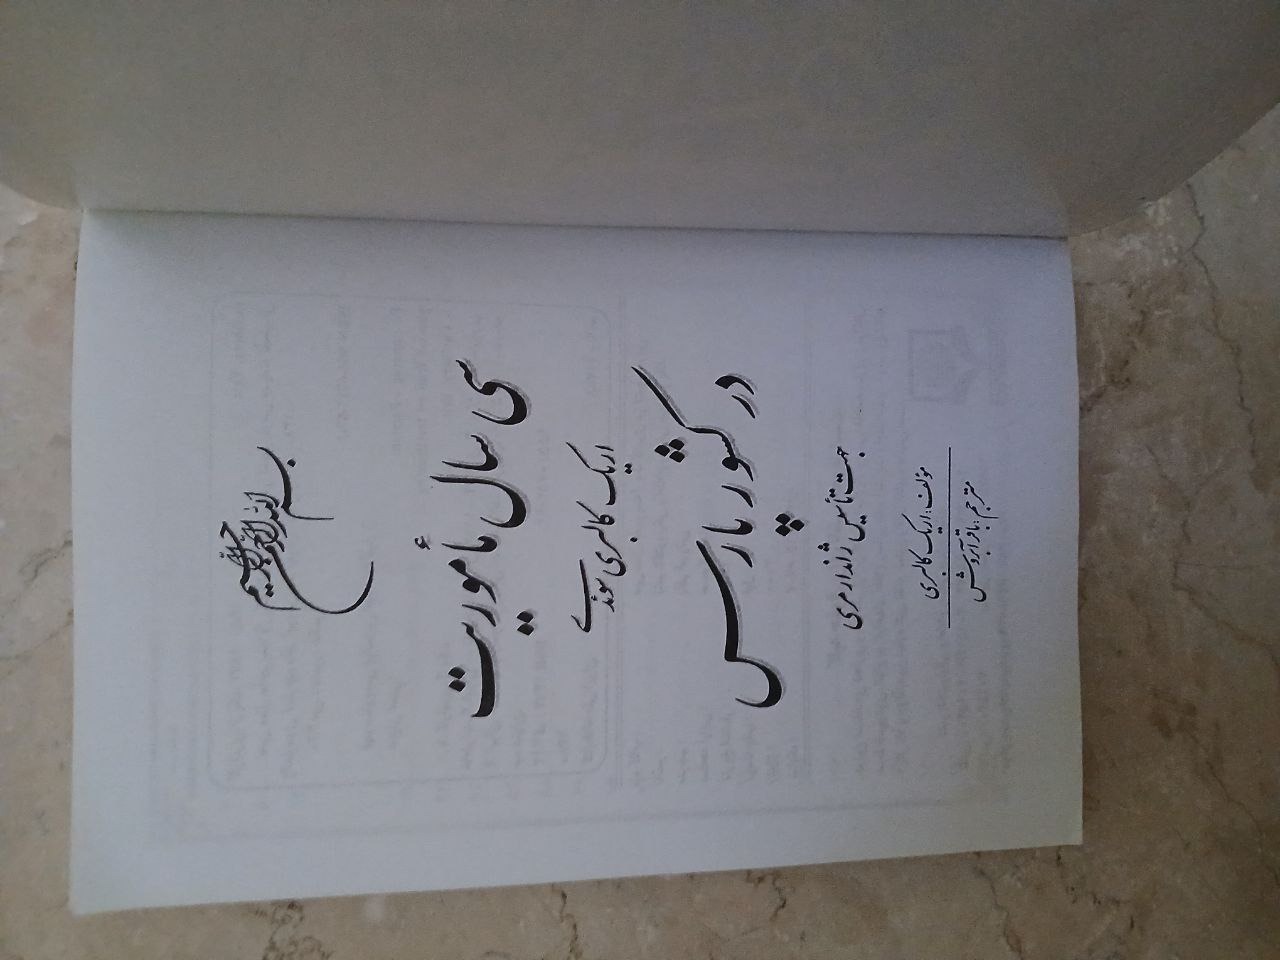 بسم الله الرحمن الرحیم
سی سال مأموریت
اریک کالبری سوئدے
در کشور پارس
جهت تأسیس ژاندارمری
مؤلف: اریک کالبری
مترجم: باقر آبروش